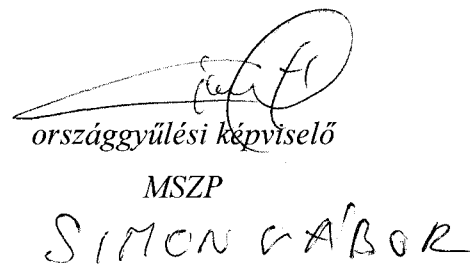 országgyűlési képviselő
MSZP
SIMON GÁBOR